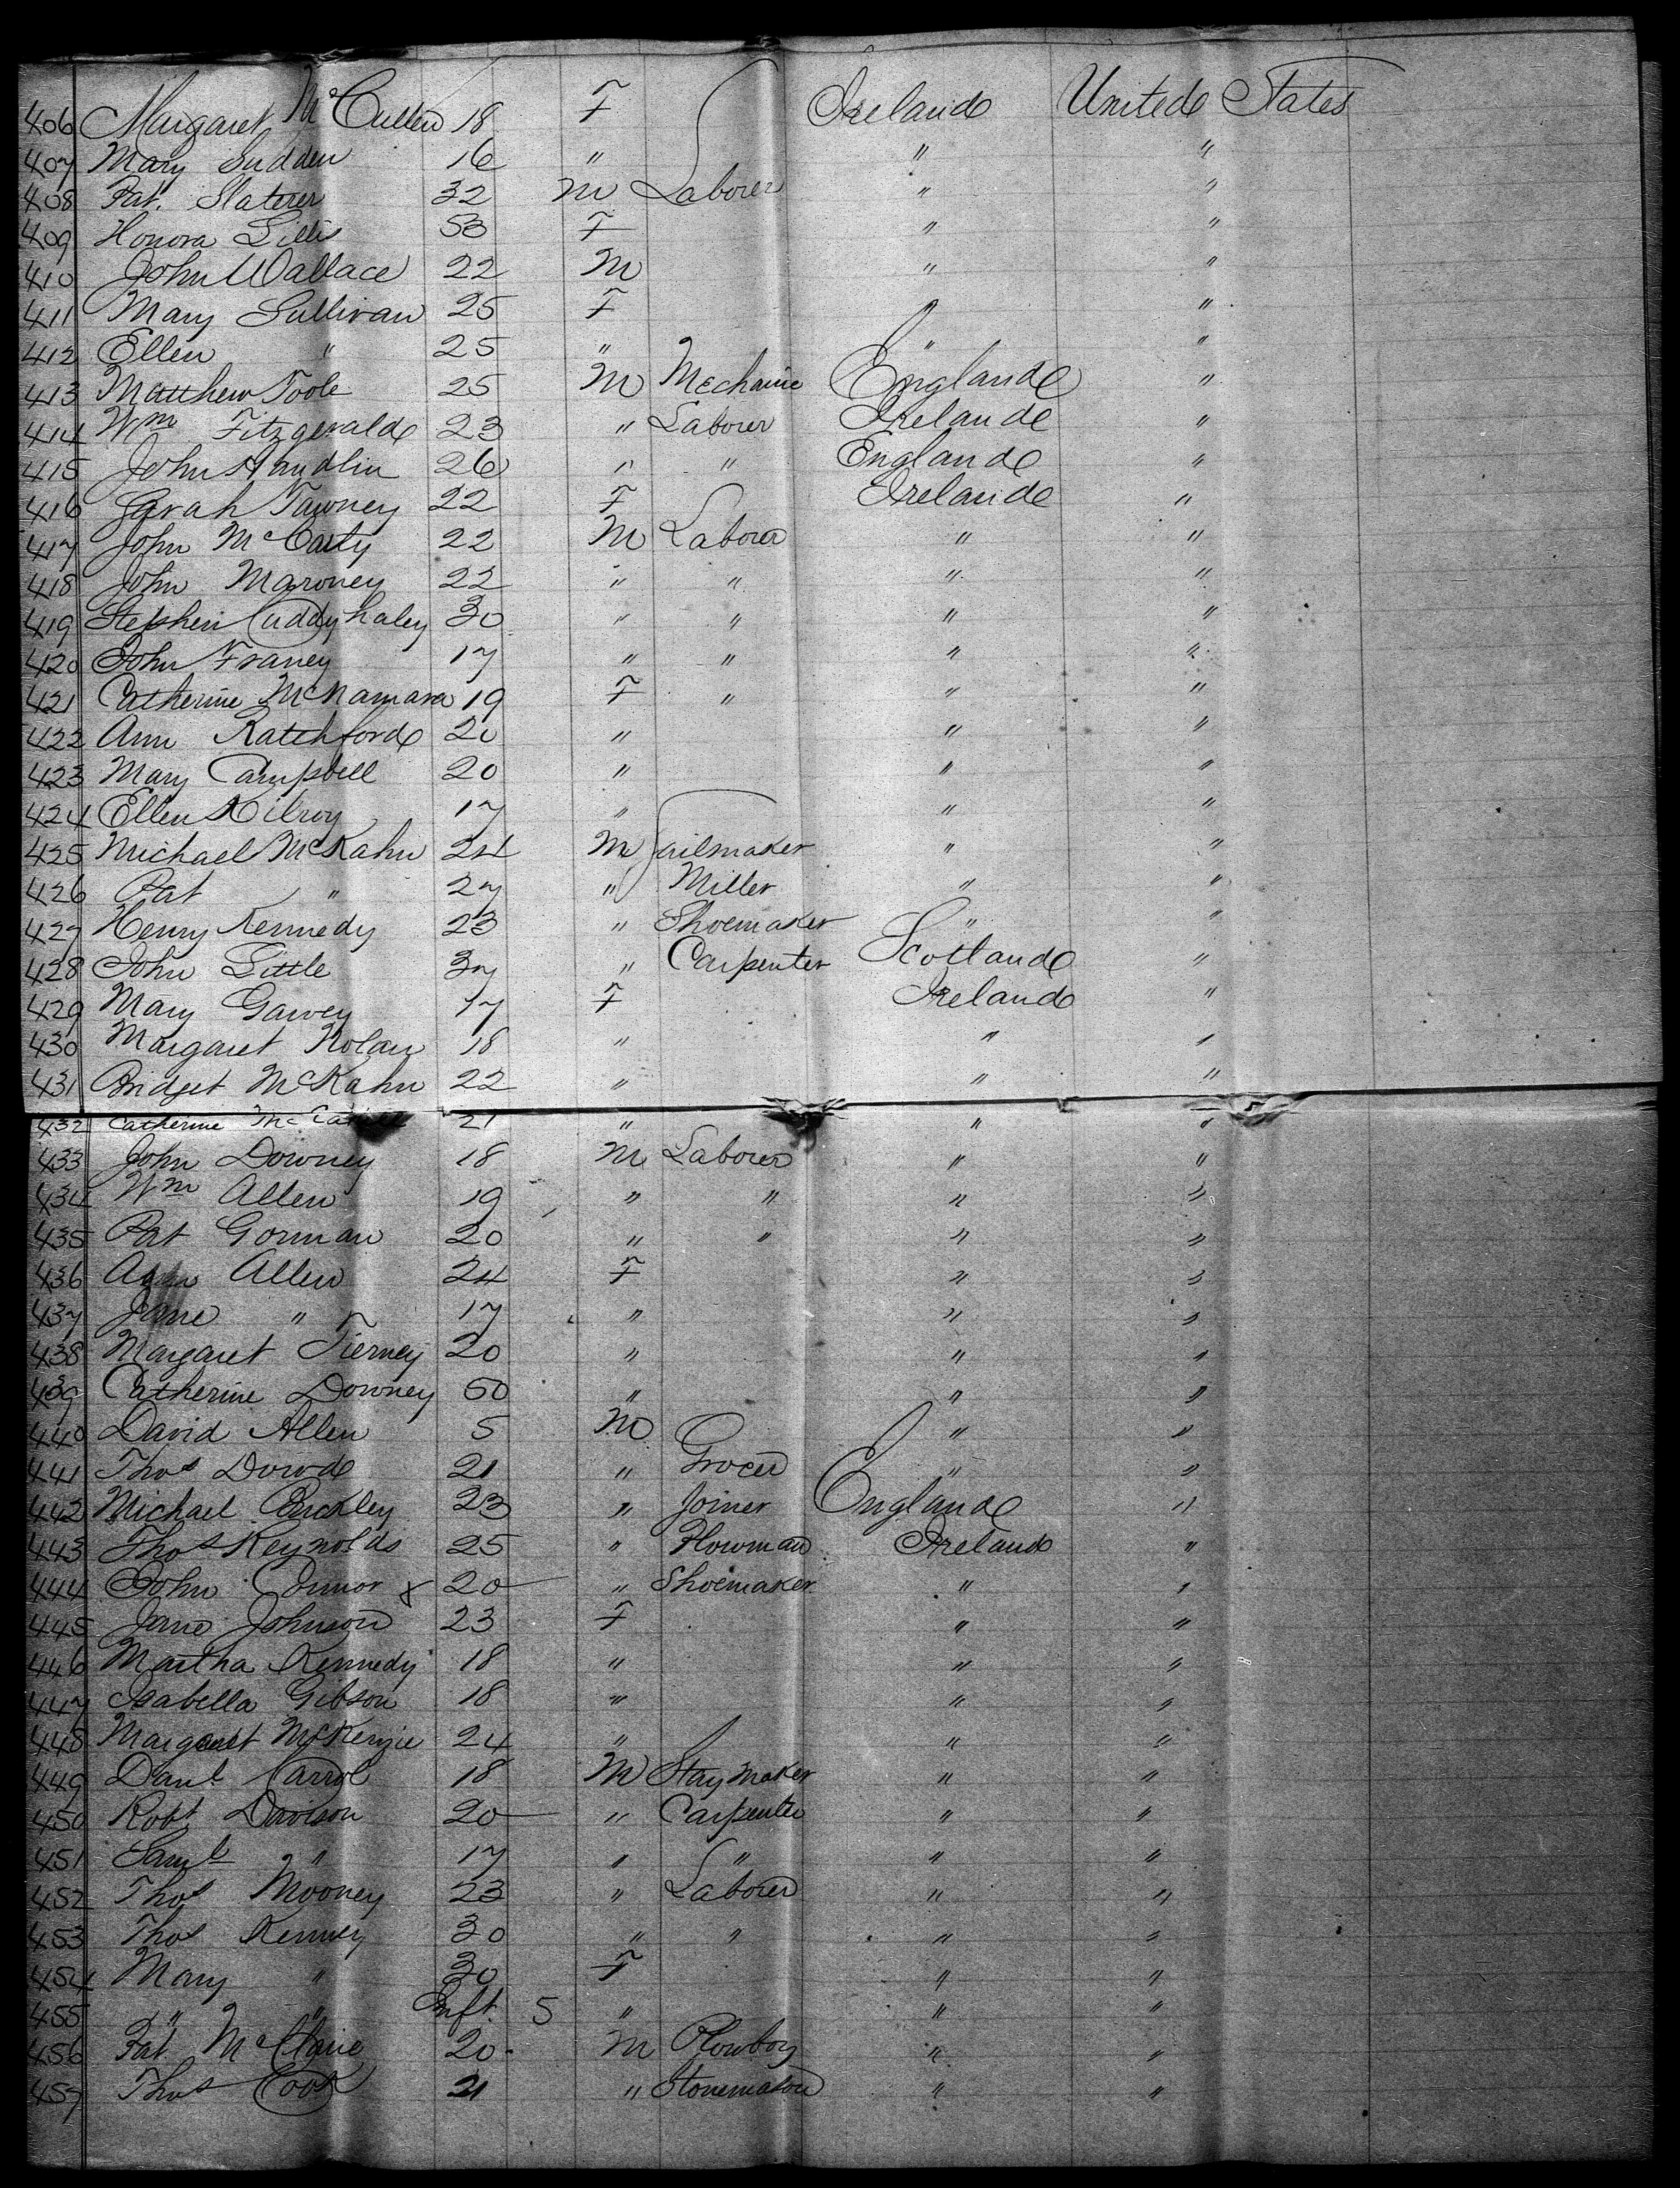 406 Margaret McCullen 18 F Ireland United States
407 Mary Sudden 16 " " "
408 Pat. Slatterer 32 M Laborer " "
409 Honora Lillis 53 F " "
410 John Wallace 22 M " "
411 Mary Sullivan 25 F " "
412 Ellen " 25 " " "
413 Matthew Toole 25 M Mechanic England "
414 Wm Fitzgerald 23 " Laborer Ireland "
415 John Handlin 26 " " England "
416 Sarah Tawney 22 F Ireland "
417 John McCarty 22 M Laborer " "
418 John Maroney 22 " " " "
419 Stephen Cuddyhaley 30 " " " "
420 John Franey 17 " " " "
421 Catherine McNamara 19 F " " "
422 Ann Ratchford 20 " " "
423 Mary Campbell 20 " " "
424 Ellen Kilroy 17 " " "
425 Michael McKahn 24 M Sailmaker " "
426 Pat " 27 " Miller " "
427 Henry Kennedy 23 " Shoemaker " "
428 John Little 37 " Carpenter Scotland "
429 Mary Garvey 17 F Ireland "
430 Margaret Nolan 18 " " "
431 Bridget McKahn 22 " " "
432 Catherine 21 " " "
433 John Downey 18 M Laborer " "
434 Wm Allen 19 " " " "
435 Pat Gorman 20 " " " "
436 Ann Allen 24 F " "
437 Jane " 17 " " "
438 Margaret Tierney 20 " " "
439 Catherine Downey 50 " " "
440 David Allen 5 M " "
441 Thos Dowd 21 " Grocer " "
442 Michael Buckley 23 " Joiner England "
443 Thos Reynolds 25 " Plowman Ireland "
444 John Connor 20 " Shoemaker " "
445 Jane Johnson 23 F " "
446 Martha Kennedy 18 " " "
447 Isabella Gibson 18 " " "
448 Margaret McKenzie 24 " " "
449 Danl Carrol 18 M Staymaker " "
450 Robt Davison 20 " Carpenter " "
451 Saml " 17 " " " "
452 Thos Mooney 23 " Laborer " "
453 Thos Kenney 30 " " " "
454 Mary " 30 F " "
455 " " Inft. 5 " " "
456 Pat McClane 20 M Plowboy " "
457 Thos Cook 21 " Stonemason " "